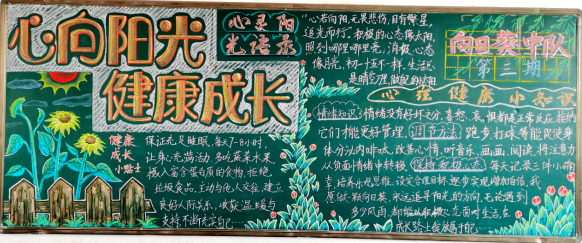 心向阳光
健康成长
心灵阳
光语录
心若向阳,无畏悲伤,目有繁星,
追光而行。积极的心态像太阳,
照到哪里哪里亮,消极心态
像月亮,初一十五不一样。生活
是晴空雨,做自己的太阳
向日葵中队
第三期
心理健康小知识
情绪知识:情绪没有好坏之分,喜怒、哀、惧都是正常反应,接纳
它们才能更好管理。调节方法:跑步、打球等能促使身
体分泌内啡呔,改善心情,听音乐、画画、阅读,将注意力
从负面情绪中转移。保持积极心态:每天记录三件小确
幸,培养乐观思维,设定合理目标,逐步实现增加自信,我
愿做一颗向日葵,永远追寻阳光的方向,无论遇到
多少风雨,都能以积极心态面对生活,在
成长路上绽放属于自己
健康
成长
小贴士
保证充足睡眠,每天7-8小时,
让身心充满活力,多吃蔬菜水果
摄入富含蛋白质的食物,拒绝
垃圾食品,主动与他人交往,建立
良好人际关系,收获温暖与
支持,不断充实自己